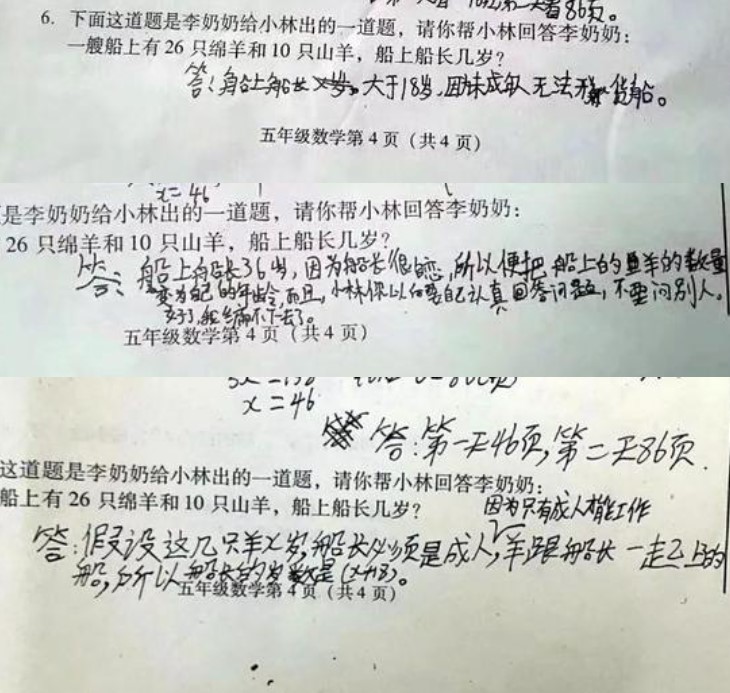 第二天看86页。
6. 下面这道题是李奶奶给小林出的一道题，请你帮小林回答李奶奶：
一艘船上有26只绵羊和10只山羊，船上船长几岁？
答：船上船长 大于18岁，因未成年人无法开货船。
五年级数学第4页（共4页）
x=46
是李奶奶给小林出的一道题，请你帮小林回答李奶奶：
26只绵羊和10只山羊，船上船长几岁？
答：船上船长36岁，因为船长很 所以便把船上的羊的数量
变为自己的年龄，而且，小林你以后要自己认真回答问题，不要问别人。
下去了。
五年级数学第4页（共4页）
x=46
答：第一天46页，第二天86页.
这道题是李奶奶给小林出的一道题，请你帮小林回答李奶奶：
船上有26只绵羊和10只山羊，船上船长几岁？
因为只有成人才能工作
答：假设这几只羊x岁，船长必须是成人，羊跟船长一起上的
船，所以船长的岁数是(x+18)。
五年级数学第4页（共4页）